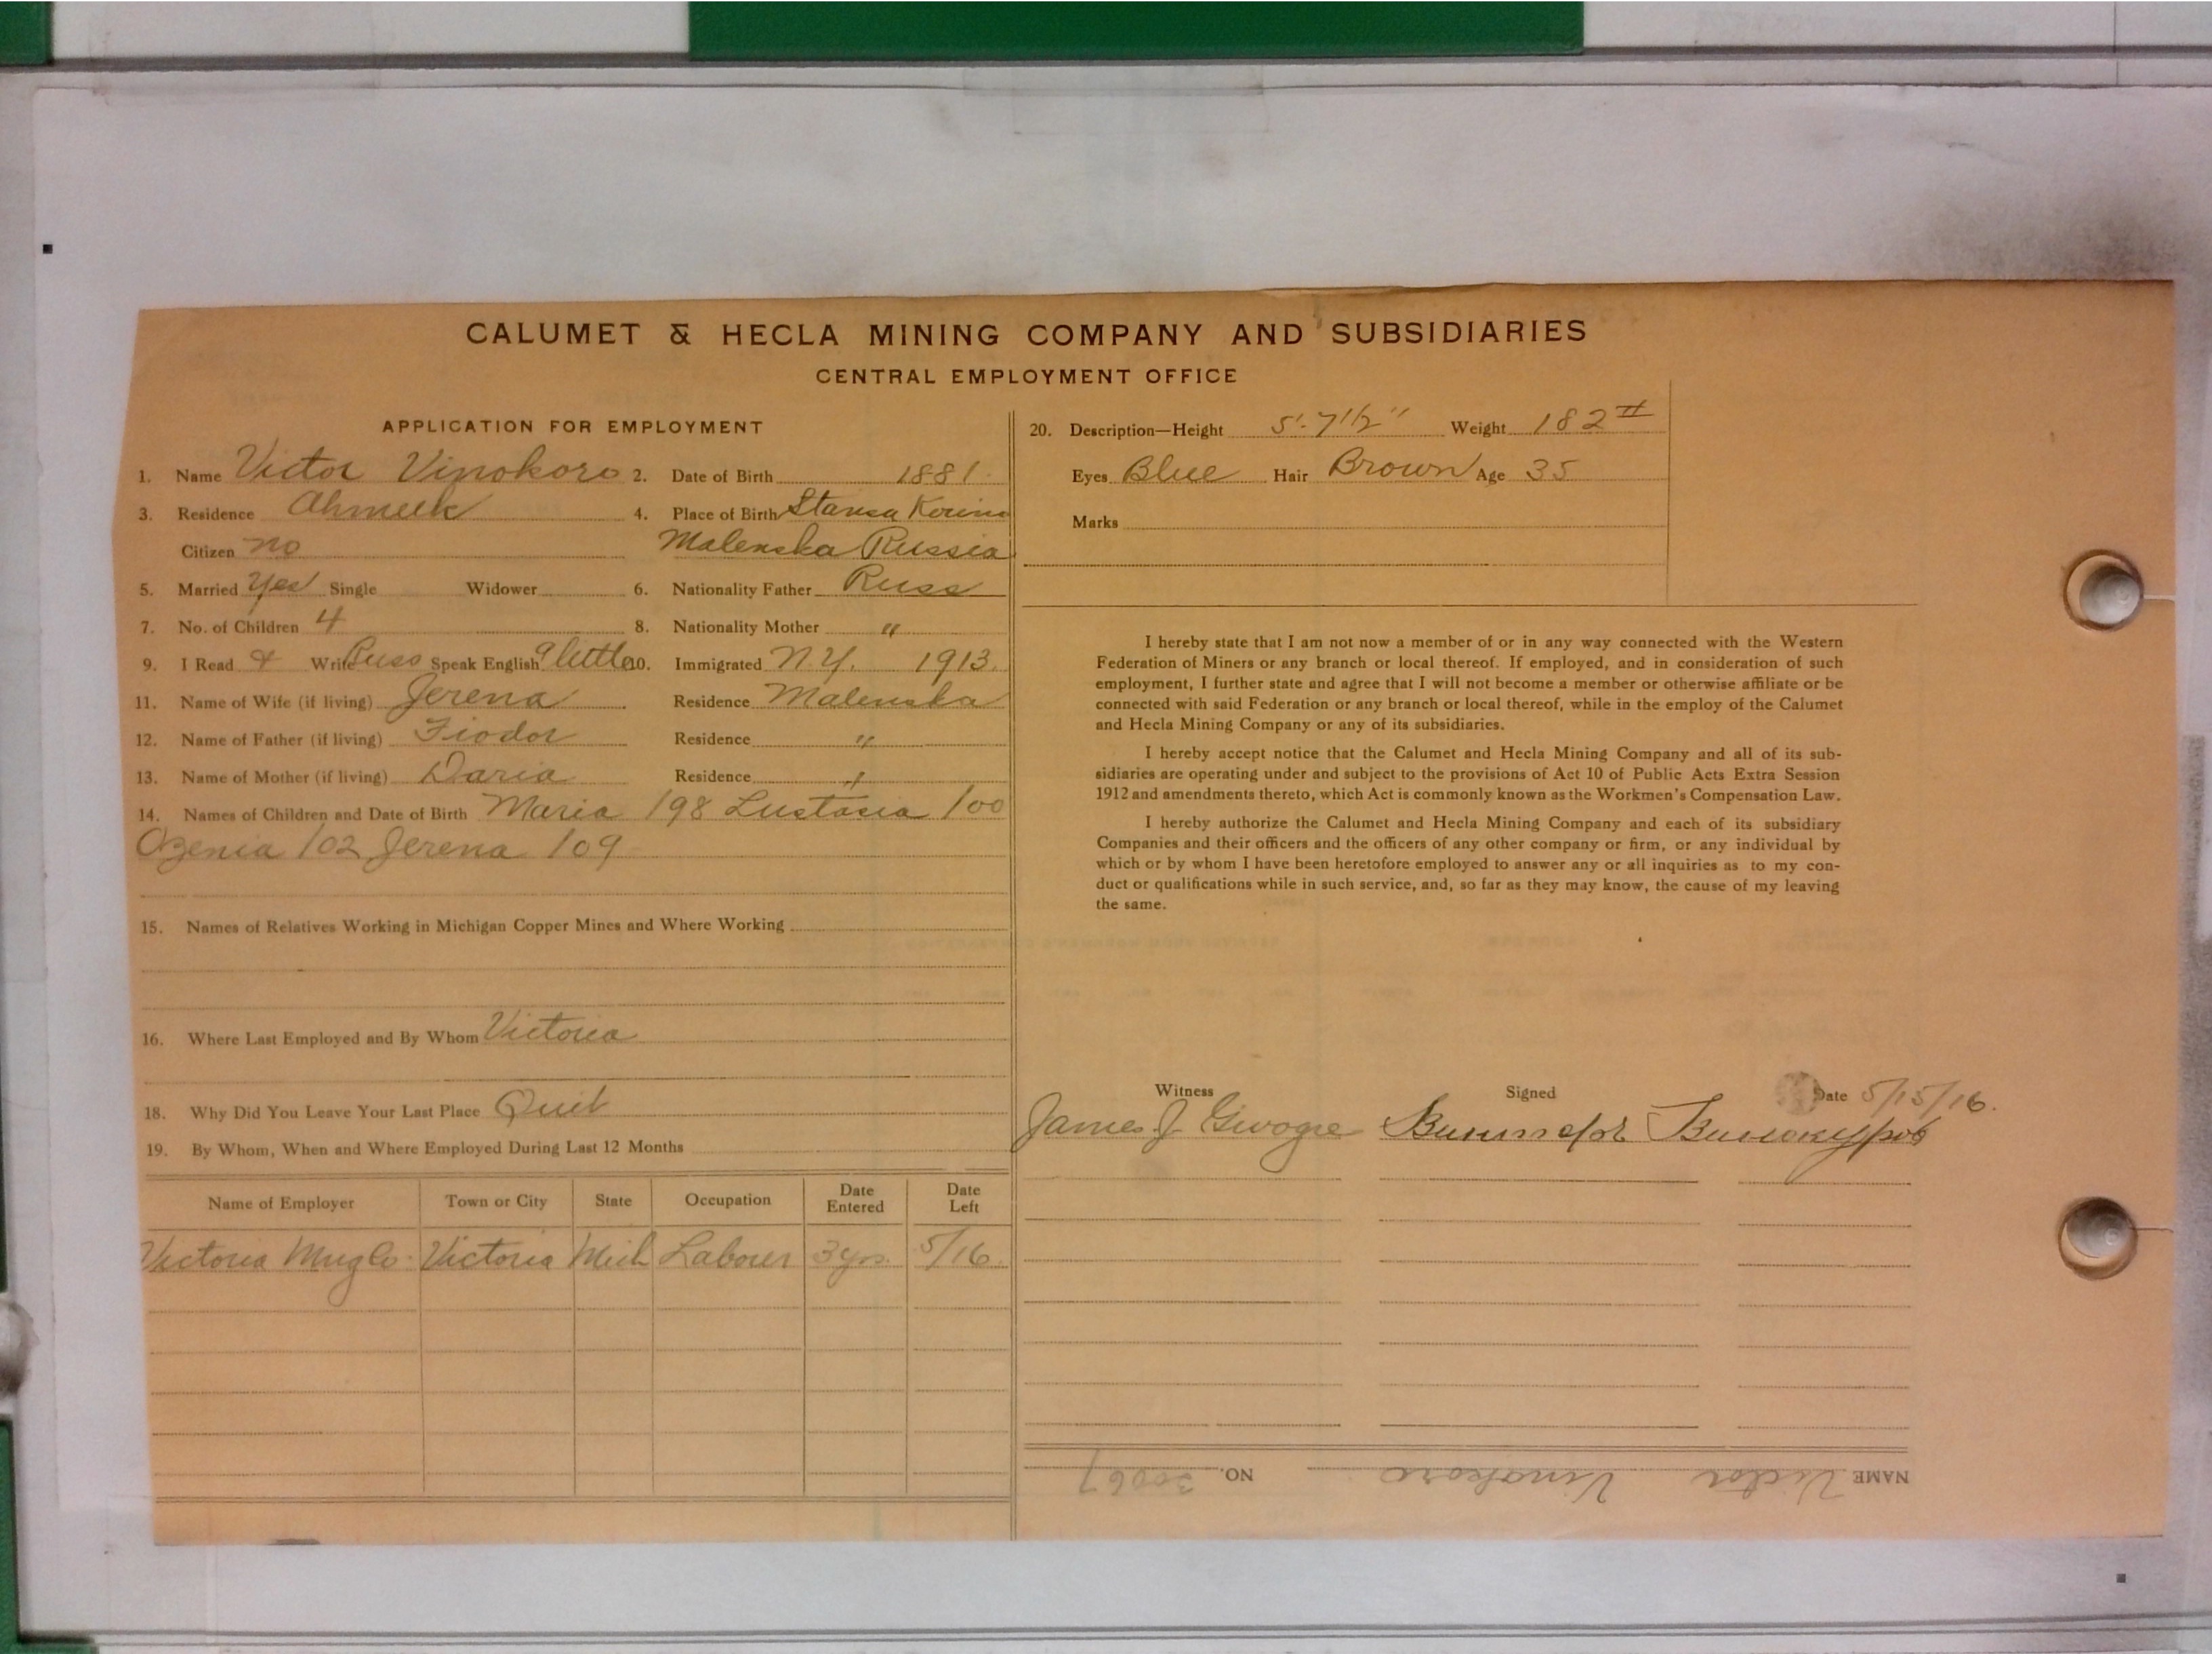 CALUMET & HECLA MINING COMPANY AND SUBSIDIARIES
CENTRAL EMPLOYMENT OFFICE
APPLICATION FOR EMPLOYMENT
1. Name Victor Vinokoro 2. Date of Birth 1881
3. Residence Ahmeek 4. Place of Birth Stansa
Citizen no Malenska Russia
5. Married Yes Single Widower 6. Nationality Father Russ
7. No. of Children 4 8. Nationality Mother "
9. I Read & Write Russ Speak English a little 10. Immigrated N.Y. 1913.
11. Name of Wife (if living) Jerena Residence Malenska
12. Name of Father (if living) Fiodor Residence "
13. Name of Mother (if living) Daria Residence "
14. Names of Children and Date of Birth Maria /98 Lustasia /00
Ozenia /02 Jerena /09
15. Names of Relatives Working in Michigan Copper Mines and Where Working
16. Where Last Employed and By Whom Victoria
18. Why Did You Leave Your Last Place Quit
19. By Whom, When and Where Employed During Last 12 Months
Name of Employer Town or City State Occupation Date Entered Date Left
Victoria Mng Co. Victoria Mich Laborer 3 yrs. 5/16.
20. Description—Height 5'-7 1/2" Weight 182 #
Eyes Blue Hair Brown Age 35
Marks
I hereby state that I am not now a member of or in any way connected with the Western
Federation of Miners or any branch or local thereof. If employed, and in consideration of such
employment, I further state and agree that I will not become a member or otherwise affiliate or be
connected with said Federation or any branch or local thereof, while in the employ of the Calumet
and Hecla Mining Company or any of its subsidiaries.
I hereby accept notice that the Calumet and Hecla Mining Company and all of its sub-
sidiaries are operating under and subject to the provisions of Act 10 of Public Acts Extra Session
1912 and amendments thereto, which Act is commonly known as the Workmen's Compensation Law.
I hereby authorize the Calumet and Hecla Mining Company and each of its subsidiary
Companies and their officers and the officers of any other company or firm, or any individual by
which or by whom I have been heretofore employed to answer any or all inquiries as to my con-
duct or qualifications while in such service, and, so far as they may know, the cause of my leaving
the same.
Witness Signed Date 5/15/16.
James J.
NAME Victor Vinokoro NO. 30067